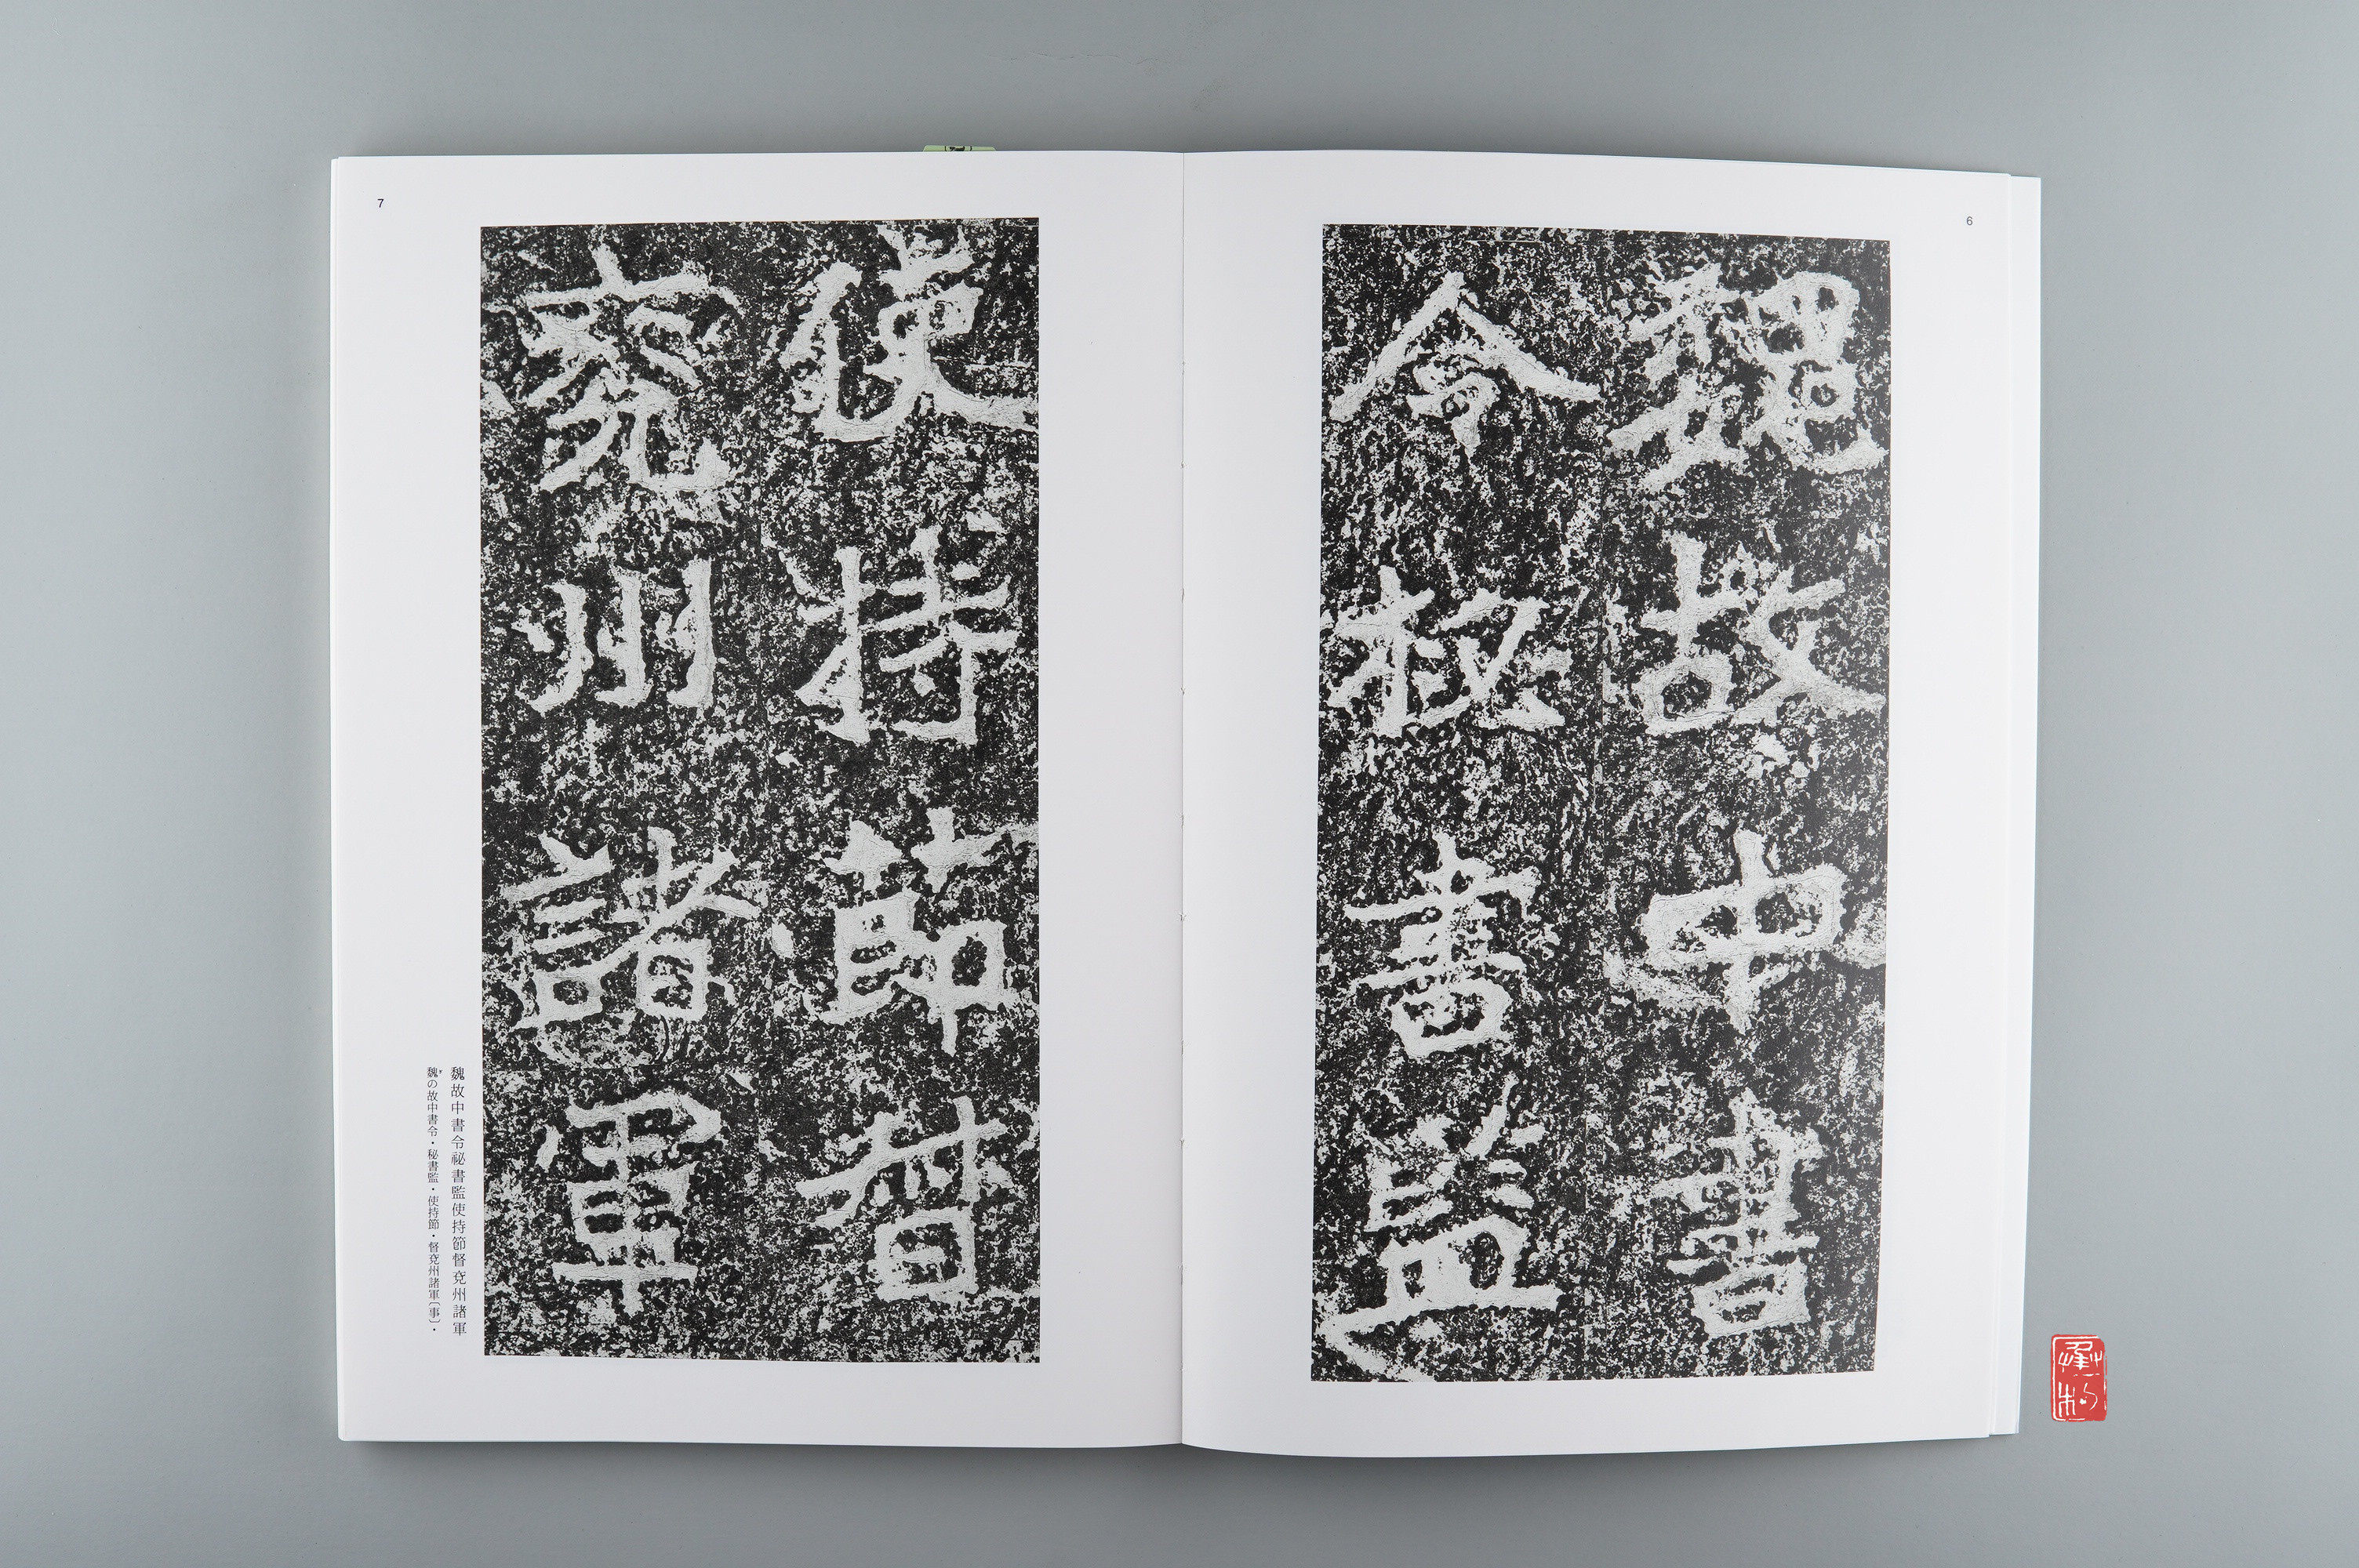 6
魏故中書
令秘書監
7
使持節督
兖州諸軍
魏故中書令祕書監使持節督兗州諸軍
魏の故中書令・秘書監・使持節・督兗州諸軍〔事〕・